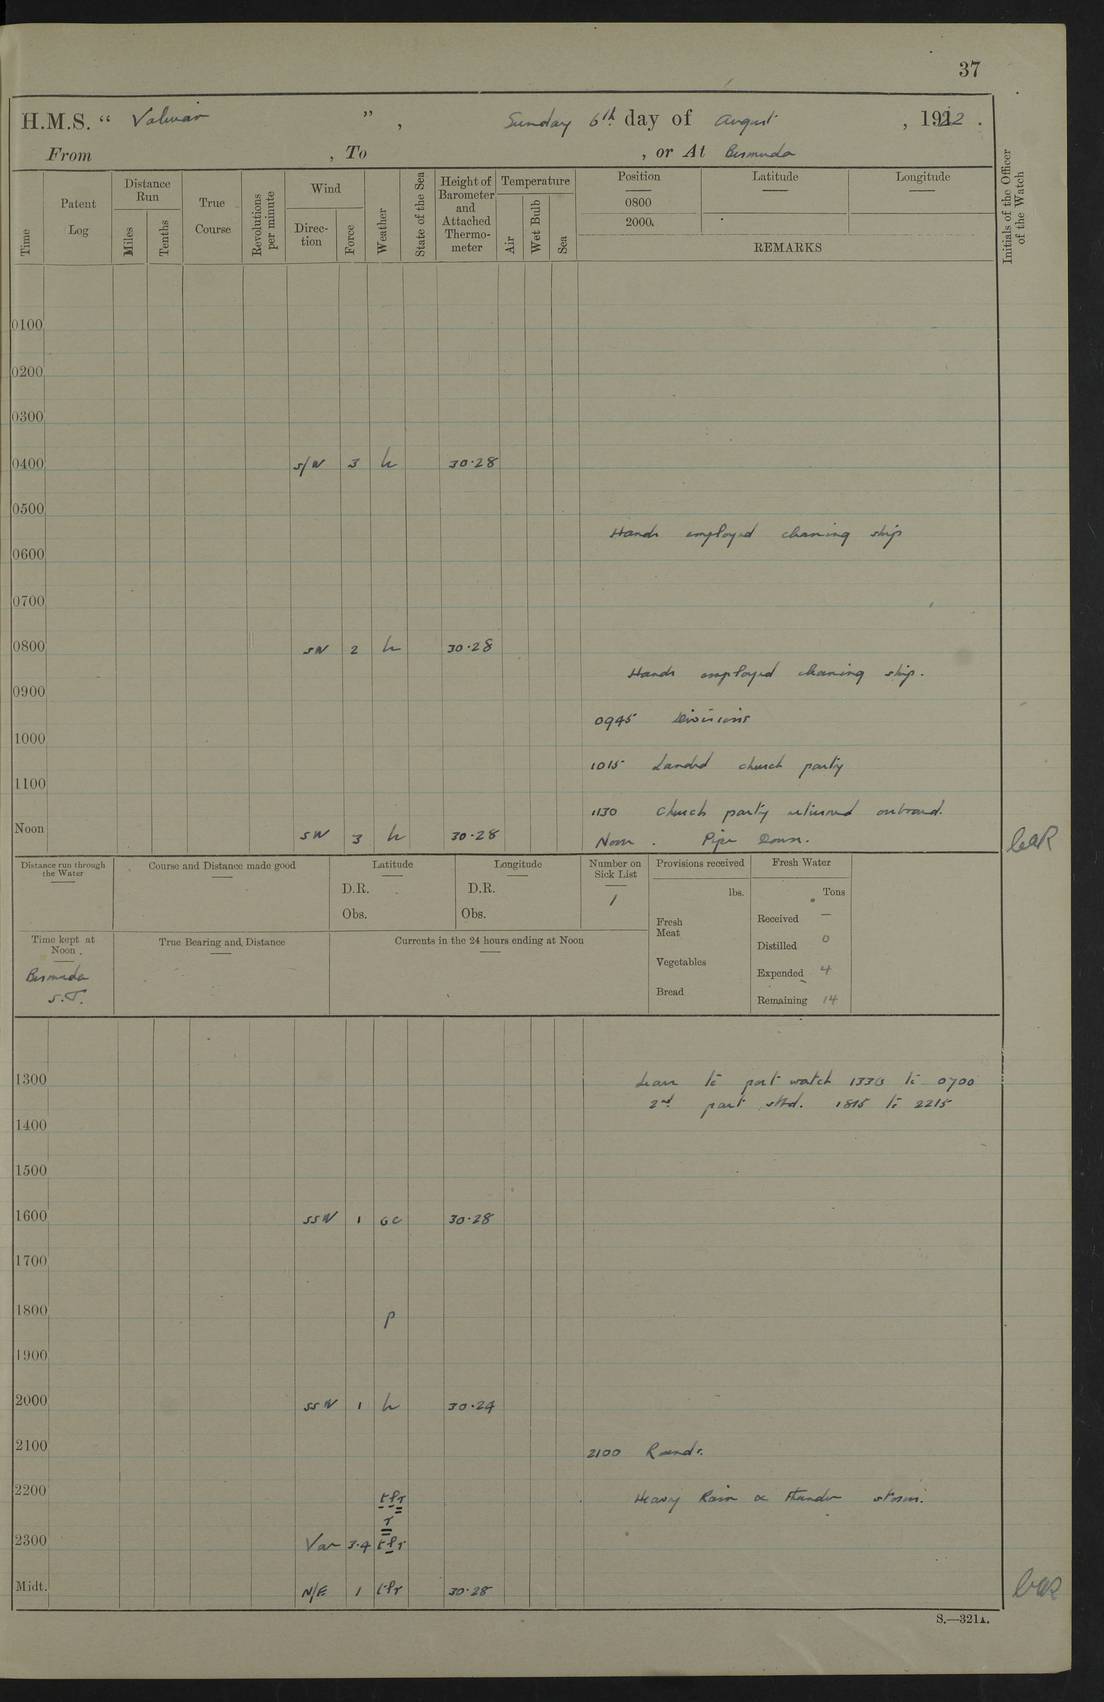 37
H.M.S. "Valerian", Sunday 6th day of August, 1922.
From , To , or At Bermuda
Time
Patent Log
Distance Run
Miles
Tenths
True Course
Revolutions per minute
Wind
Direction
Force
Weather
State of the Sea
Height of Barometer and Attached Thermometer
Temperature
Air
Wet Bulb
Sea
Position
0800
2000.
Latitude
Longitude
REMARKS
Initials of the Officer of the Watch
0100
0200
0300
0400 S/W 3 b 30.28
0500
Hands employed cleaning ship
0600
0700
0800 SW 2 b 30.28
Hands employed cleaning ship.
0900
0945 Divisions
1000
1015 Landed church party
1100
1130 Church party returned onboard.
Noon SW 3 b 30.28 Noon. Pipe Down.
Distance run through the Water
Course and Distance made good
Latitude
D.R.
Obs.
Longitude
D.R.
Obs.
Number on Sick List
1
Provisions received
lbs.
Fresh Meat
Vegetables
Bread
Fresh Water
Tons
Received —
Distilled 0
Expended 4
Remaining 14
Time kept at Noon.
Bermuda
S.T.
True Bearing and Distance
Currents in the 24 hours ending at Noon
1300 Leave to port watch 1330 to 0700
2nd part stbd. 1815 to 2215
1400
1500
1600 SSW 1 bc 30.28
1700
1800 p
1900
2000 SSW 1 b 30.24
2100 2100 Rounds.
2200 tlr Heavy Rain & thunder storm.
r
2300 Var 3.4 tlr
Midt. N/E 1 tlr 30.28
S.—321A.